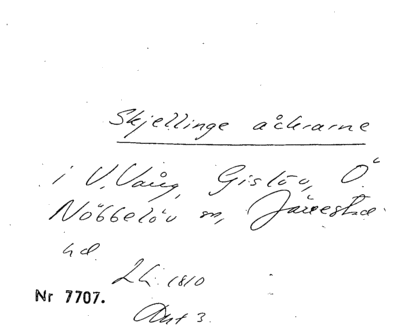 Skjellinge åckrarne
i V. Vång, Gislöv, Ö.
Nöbbelöv sn, Järrestad
hd.
Lh. 1810
Akt 3.
Nr 7707.